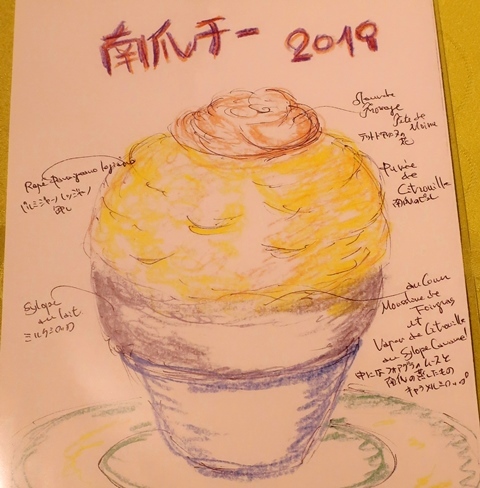 南瓜チー 2019
Fleur de
Fromage
Tête de
Moine
テットドモアンヌの
花
Rapé Parmigiano
パルミジャーノレッジャーノ
Purée
de
Citrouille
南瓜の
Sylope
au Lait
ミルクシロップ
au Coeur
Mousse de
Foisgras
et
Vapeur de Citrouille
au Slope Caramel
中にはフォアグラのムースと
南瓜の蒸したもの
キャラメルシロップ